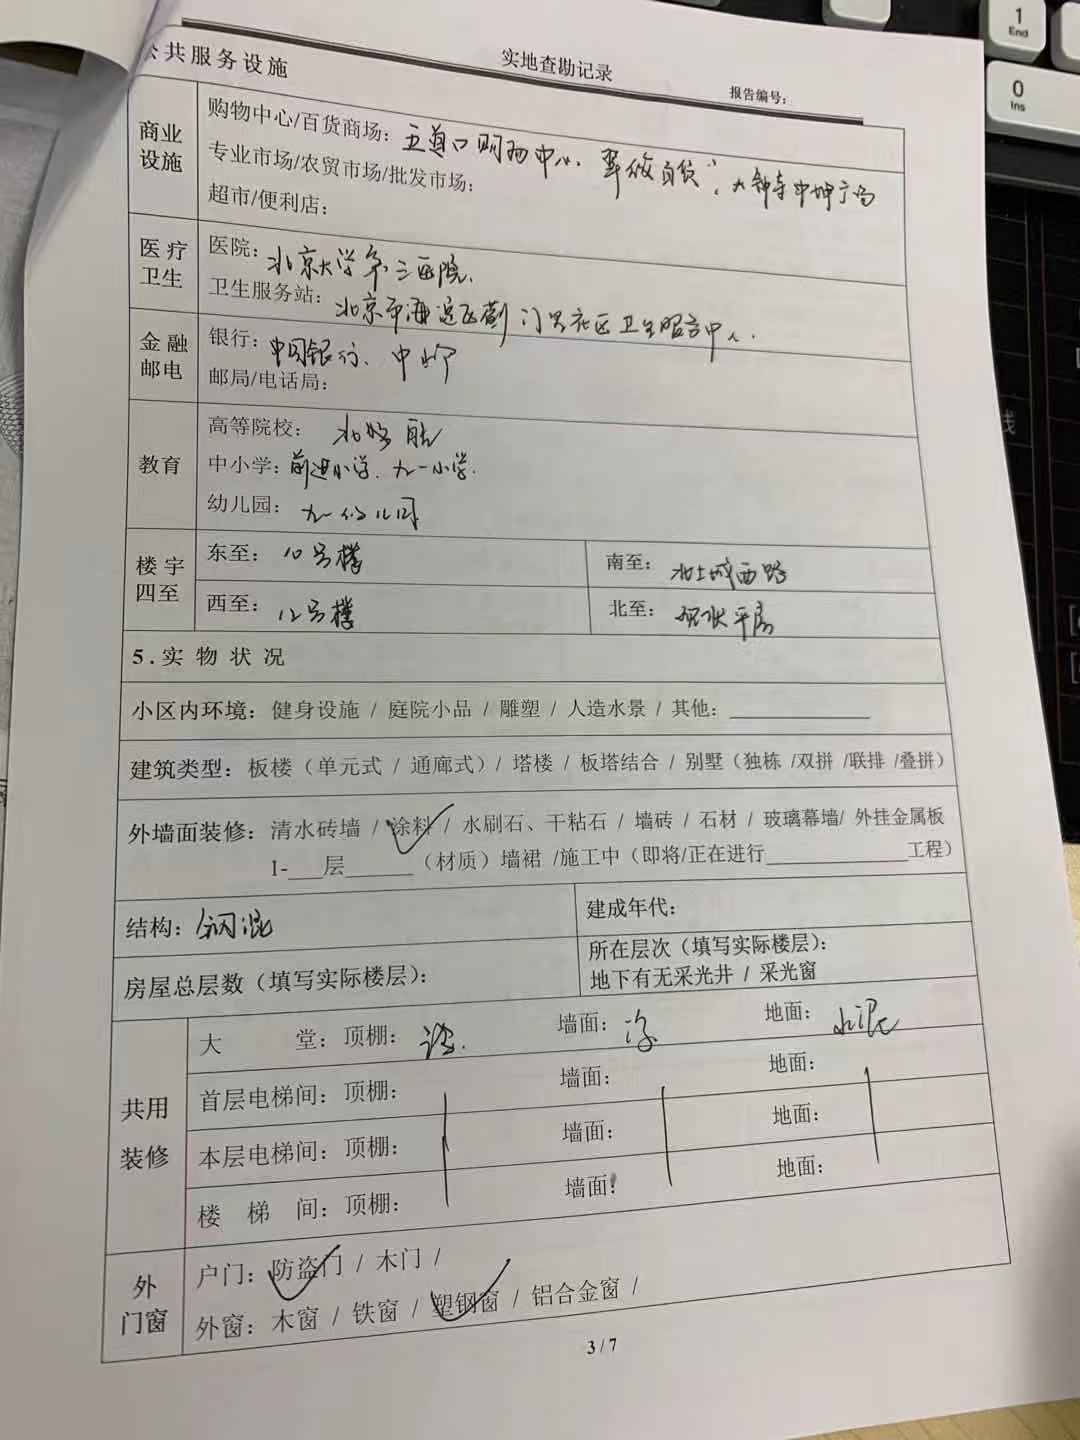 实地查勘记录
报告编号：
公共服务设施
商业设施
购物中心/百货商场：五道口购物中心、翠微百货、大钟寺中坤广场
专业市场/农贸市场/批发市场：
超市/便利店：
医疗卫生
医院：北京大学第三医院.
卫生服务站：北京市海淀区蓟门里社区卫生服务中心.
金融邮电
银行：中国银行、
邮局/电话局：
教育
高等院校：
中小学：前进小学、九一小学.
幼儿园：九一幼儿园
楼宇四至
东至：10号楼
南至：北土城西路
西至：12号楼
北至：现状平房
5.实物状况
小区内环境：健身设施 / 庭院小品 / 雕塑 / 人造水景 / 其他：
建筑类型：板楼（单元式 / 通廊式）/ 塔楼 / 板塔结合 / 别墅（独栋 /双拼 /联排 /叠拼）
外墙面装修：清水砖墙 / 涂料 / 水刷石、干粘石 / 墙砖 / 石材 / 玻璃幕墙/ 外挂金属板
1-___层______（材质）墙裙 /施工中（即将/正在进行____________工程）
结构：钢混
建成年代：
房屋总层数（填写实际楼层）：
所在层次（填写实际楼层）：
地下有无采光井 / 采光窗
共用装修
大 堂：顶棚：涂. 墙面：涂 地面：水泥
首层电梯间：顶棚： 墙面： 地面：
本层电梯间：顶棚： 墙面： 地面：
楼 梯 间：顶棚： 墙面： 地面：
外门窗
户门：防盗门 / 木门 /
外窗：木窗 / 铁窗 / 塑钢窗 / 铝合金窗 /
3 / 7
1
End
0
Ins